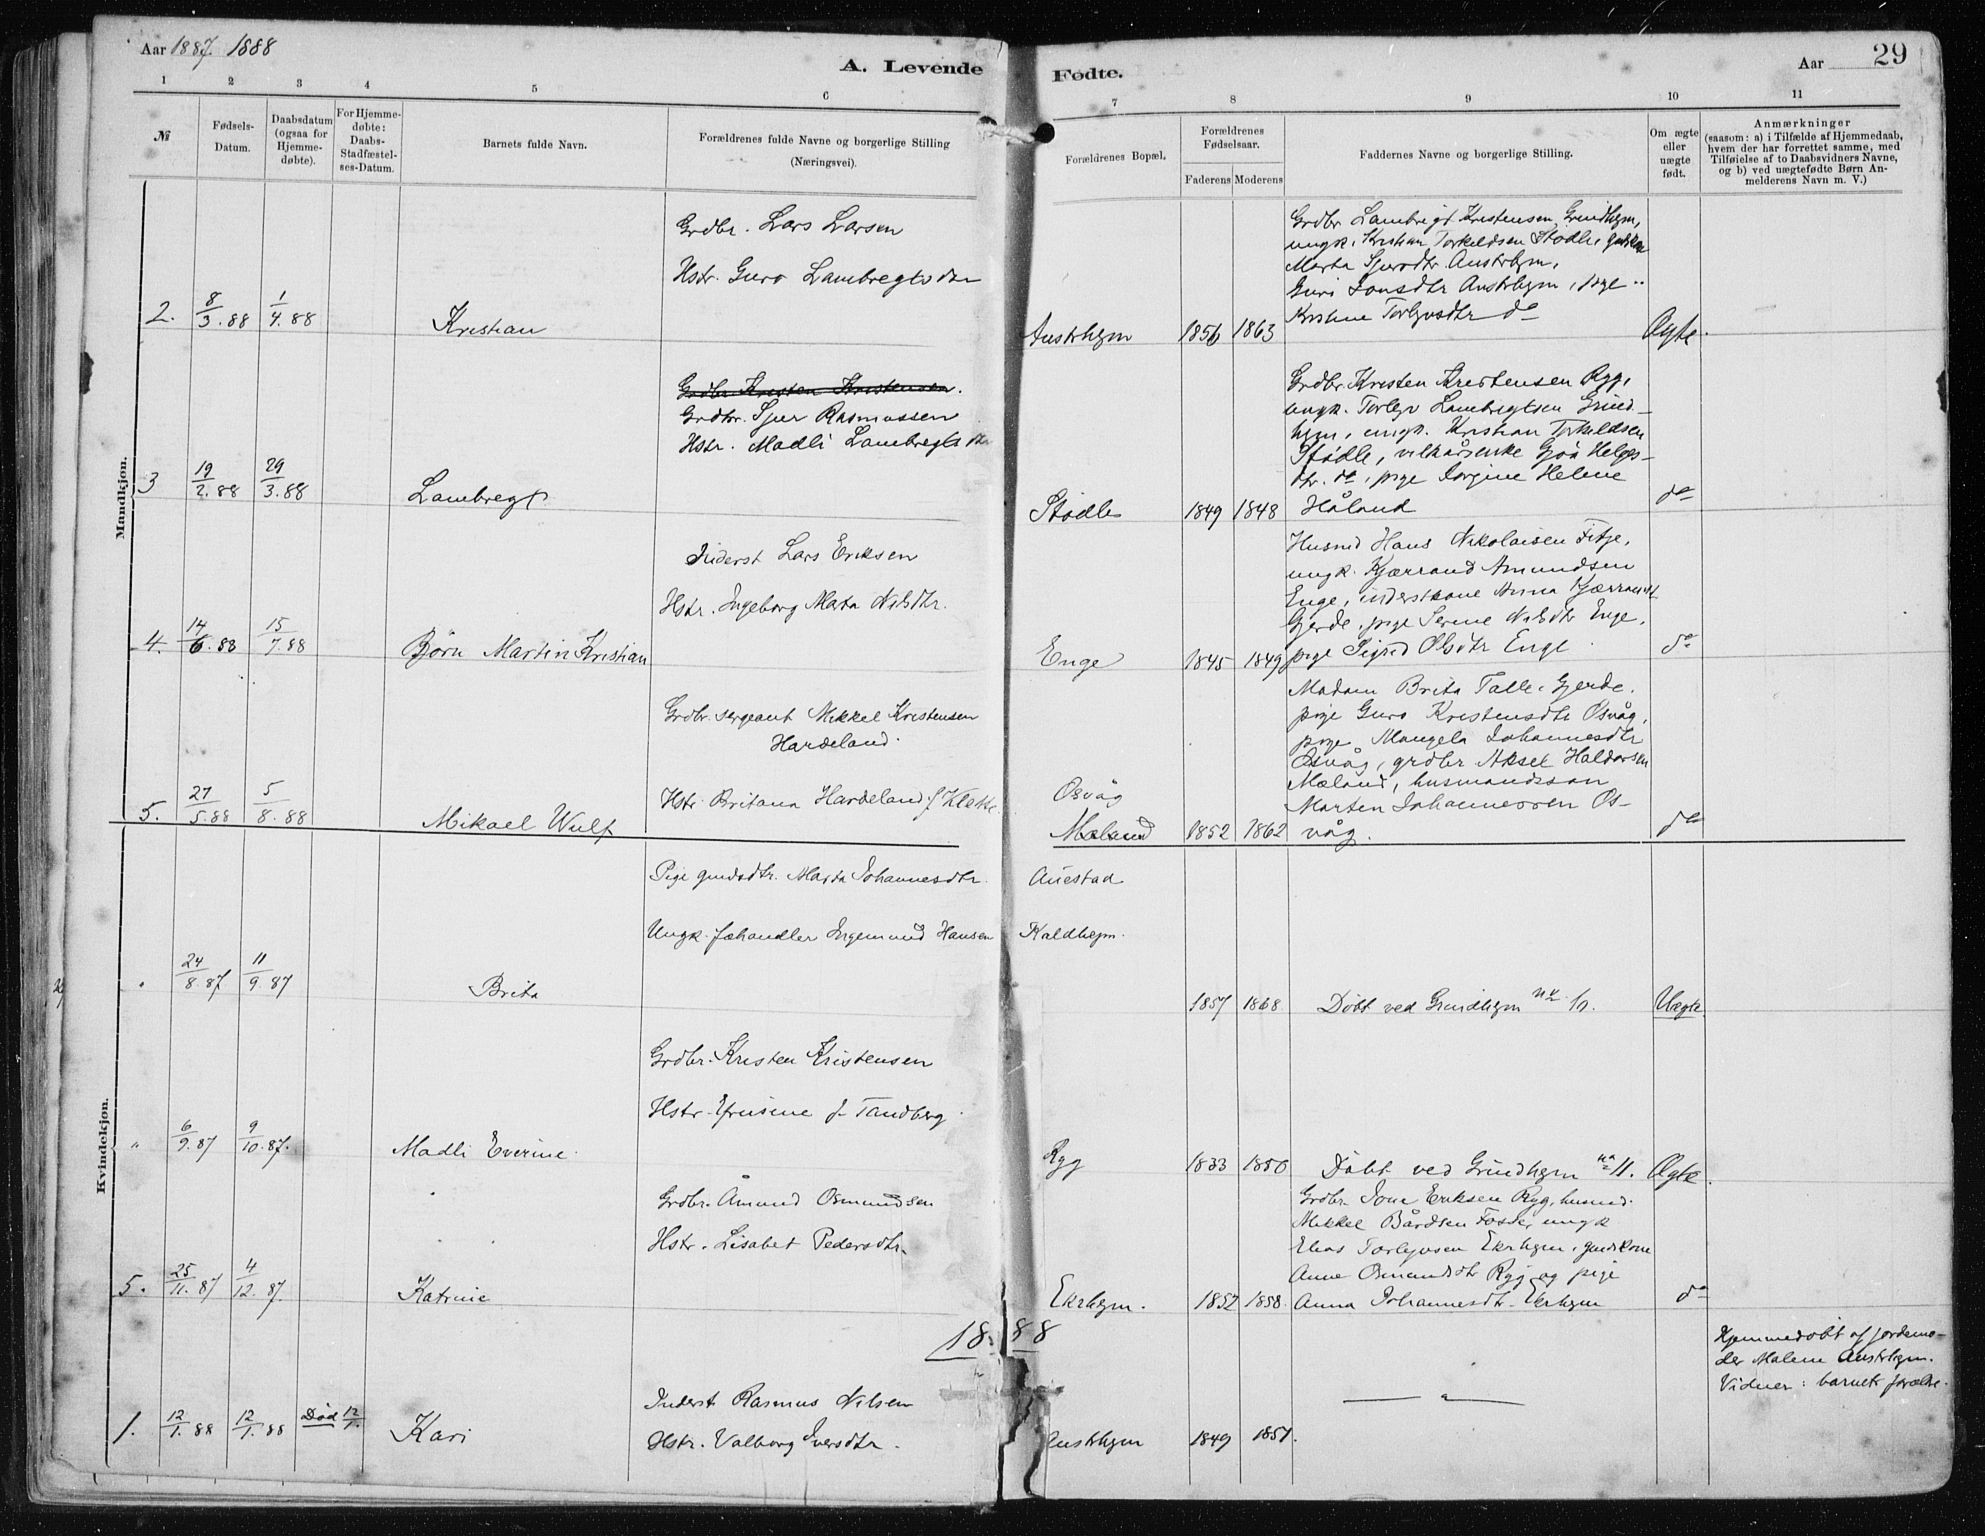 Aar 1887. 1888
A. Levende Fødte.
Aar
29
1 2 3 4 5 6 7 8 9 10 11
№
Fødsels-
Datum.
Daabsdatum
(ogsaa for
Hjemme-
døbte).
For Hjemme-
døbte:
Daabs-
Stadfæstel-
ses-Datum.
Barnets fulde Navn.
Forældrenes fulde Navne og borgerlige Stilling
(Næringsvei).
Forældrenes Bopæl.
Forældrenes
Fødselsaar.
Faderens Moderens
Faddernes Navne og borgerlige Stilling.
Om ægte
eller
uægte
født.
Anmærkninger
(saasom: a) i Tilfælde af Hjemmedaab,
hvem der har forrettet samme, med
Tilføielse af to Daabsvidners Navne,
og b) ved uægtefødte Børn An-
melderens Navn m. V.)
Mandkjøn.
2. 8/3.88 1/4.88 Kristian
Grdbr. Lars Larsen
Hstr. Guro Lambregtsdtr
Austrhejm 1856 1863
Grdbr Lambregt Kristensen Grindhejm,
ungk. Kristian Torkildsen Stødle, gmdskone
Marta Sjursdtr Austrhejm,
Guri Jonsdtr Austrhejm, pige
Kristine Torlejvsdtr do
Ægte.
3 19/2.88 29/3.88 Lambregt
Grdbr Kristen Kristensen.
Grdbr. Sjur Rasmussen
Hstr. Madli Lambregtsdtr
Stødle 1849 1848
Grdbr. Kristen Kristensen Ryg,
ungk. Torlejv Lambregtsen Grind-
hejm, ungk. Kristian Torkildsen
Stødle, vilkårsenke Gjøa Helges-
dtr. do, pige Jorgine Helene
Håland
do
4. 14/6.88 15/7.88 Bjørn Martin Kristian
Inderst Lars Eriksen
Hstr. Ingeborg Marta Nilsdtr.
Enge 1845 1849
Husmd Hans Nikolaisen Fitje,
ungk. Kjærrand Amundsen
Enge, inderstkone Anna Kjærrandsdt
Gjerde, pige Serine Nilsdtr Enge,
pige Sigrid Olsdtr Enge
do
5. 27/5.88 5/8.88 Mikael Wulf
Grdbr. sergeant Mikkel Kristensen
Hardeland.
Hstr. Britana Hardeland f. Klokk.
Osvåg
Mæland 1852 1862
Madam Brita Talle Gjerde,
pige Guro Kristensdtr Osvåg,
pige Mangela Johannesdtr
Osvåg, grdbr Aksel Haldorsen
Mæland, husmandssøn
Morten Johannessen Os-
våg.
do
Kvindekjøn.
" 24/8.87 11/9.87 Brita
Pige gmdsdtr. Marta Johannesdtr.
Ungk. fæhandler Ingemund Hansen
Auestad
Kaldhejm.
1857 1868 Døbt ved Grindhejm no 10. Uægte.
" 6/9.87 9/10.87. Madli Everine.
Grdbr. Kristen Kristensen
Hstr. Efrusine f. Tandberg.
Ryg 1833 1850 Døbt ved Grindhejm no 11. Ægte.
5. 25/11.87 4/12.87. Katrine
Grdbr. Åmund Osmundsen
Hstr. Lisabet Pedersdtr.
Ekrhejm. 1852 1858.
Grdbr. Jone Eriksen Ryg, husmd.
Mikkel Bårdsen Fosse, ungk
Elias Torlejvsen Ekrhejm, gmdskone
Anne Osmundsdtr Ryg og pige
Anna Johannesdtr. Ekrhejm
do
1888
1. 12/1.88 12/1.88 Død 12/1. Kari
Inderst Rasmus Nilsen
Hstr. Valborg Iversdtr.
Austrhejm 1849 1851.
— " —
Hjemmedøbt af jordemo-
der Malene Austrhejm.
Vidner: barnets foræltre.